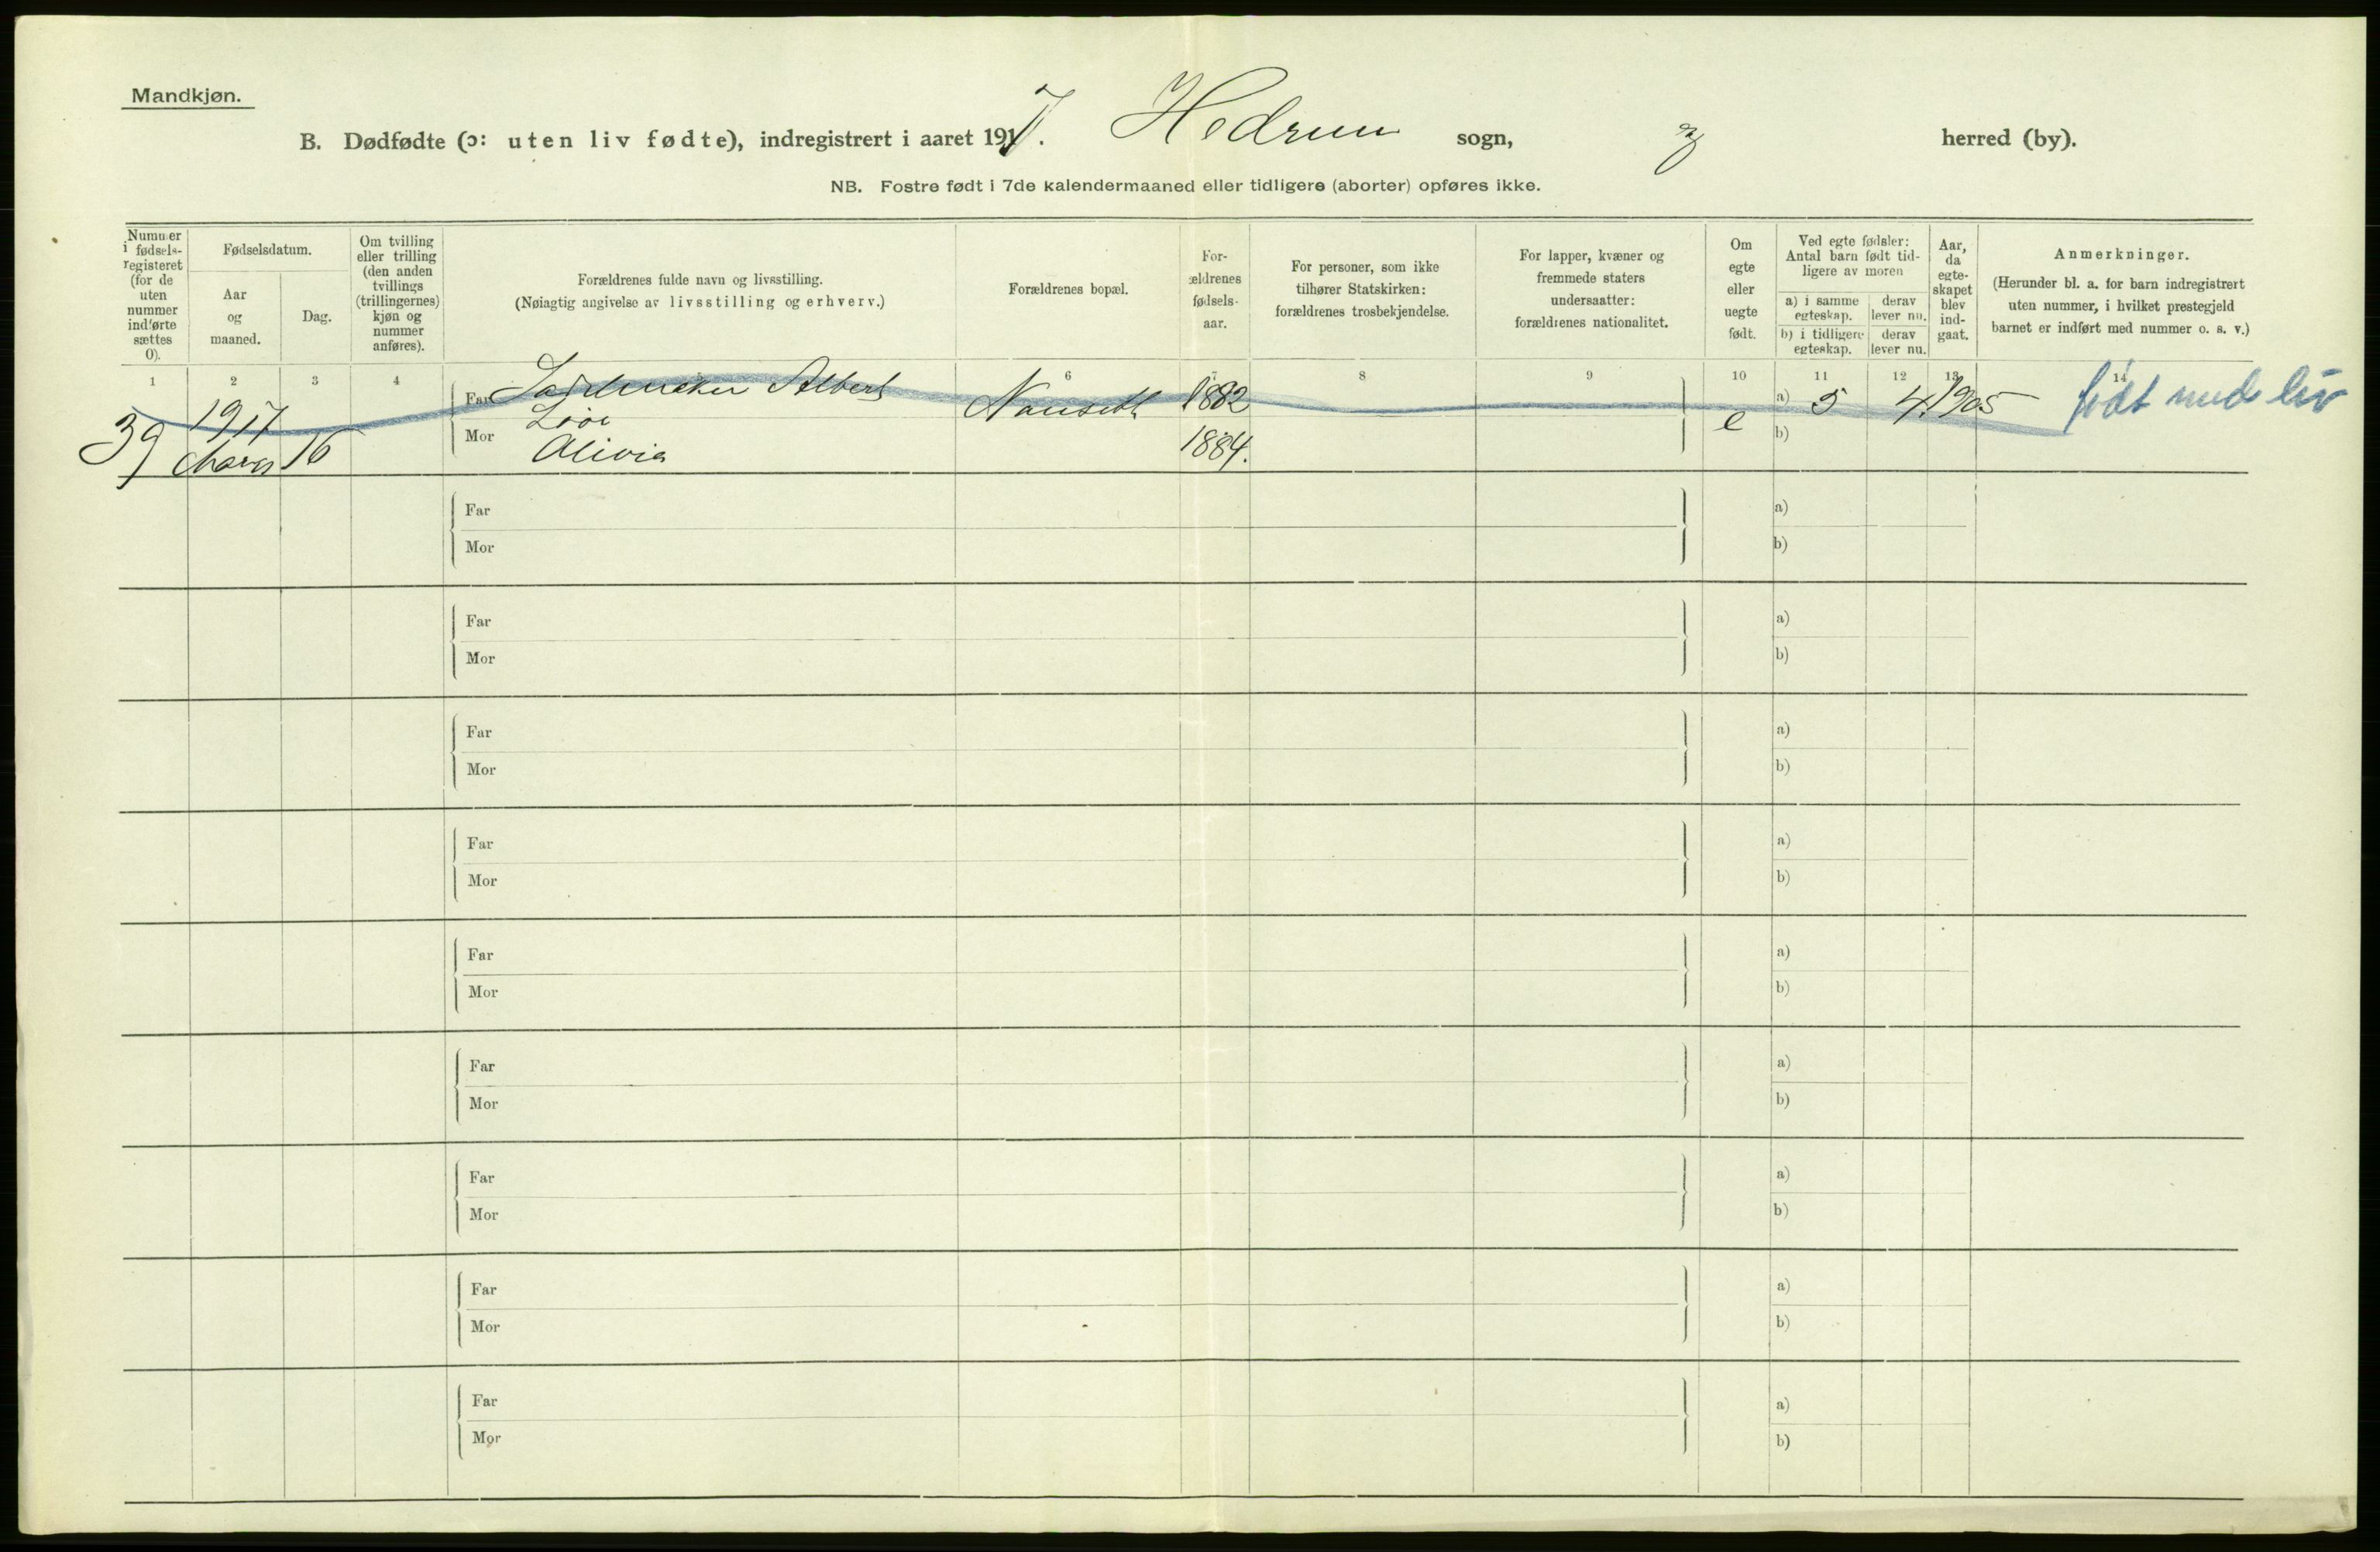 Mandkjøn.
B. Dødfødte (ɔ: uten liv fødte), indregistrert i aaret 1917. Hedrum sogn, herred (by).
NB. Fostre født i 7de kalendermaaned eller tidligere (aborter) opføres ikke.
Nummer i fødsels-registeret (for de uten nummer indførte sættes 0).
Fødselsdatum.
Aar og maaned.
Dag.
Om tvilling eller trilling (den anden tvillings (trillingernes) kjøn og nummer anføres).
Forældrenes fulde navn og livsstilling.
(Nøiagtig angivelse av livsstilling og erhverv.)
Forældrenes bopæl.
For-ældrenes fødsels-aar.
For personer, som ikke tilhører Statskirken: forældrenes trosbekjendelse.
For lapper, kvæner og fremmede staters undersaatter: forældrenes nationalitet.
Om egte eller uegte født.
Ved egte fødsler: Antal barn født tid-ligere av moren
a) i samme egteskap.
derav lever nu.
b) i tidligere egteskap.
derav lever nu.
Aar, da egte-skapet blev ind-gaat.
Anmerkninger.
(Herunder bl. a. for barn indregistrert uten nummer, i hvilket prestegjeld barnet er indført med nummer o. s. v.)
1 2 3 4 5 6 7 8 9 10 11 12 13 14
39 1917 Mars 16
Far Albert
Mor Alivia
Nanseth
1882
1884.
e
a) 5 4 1905
b)
født med liv
Far a)
Mor b)
Far a)
Mor b)
Far a)
Mor b)
Far a)
Mor b)
Far a)
Mor b)
Far a)
Mor b)
Far a)
Mor b)
Far a)
Mor b)
Far a)
Mor b)